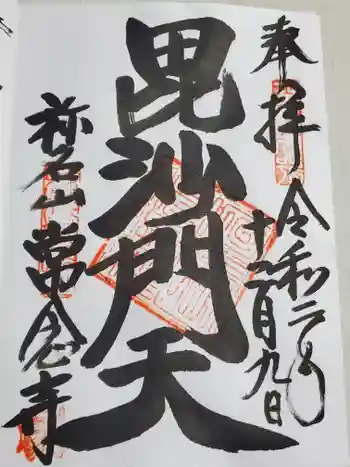 奉拝
令和二年
十一月九日
毘沙門天
称名山
常念寺